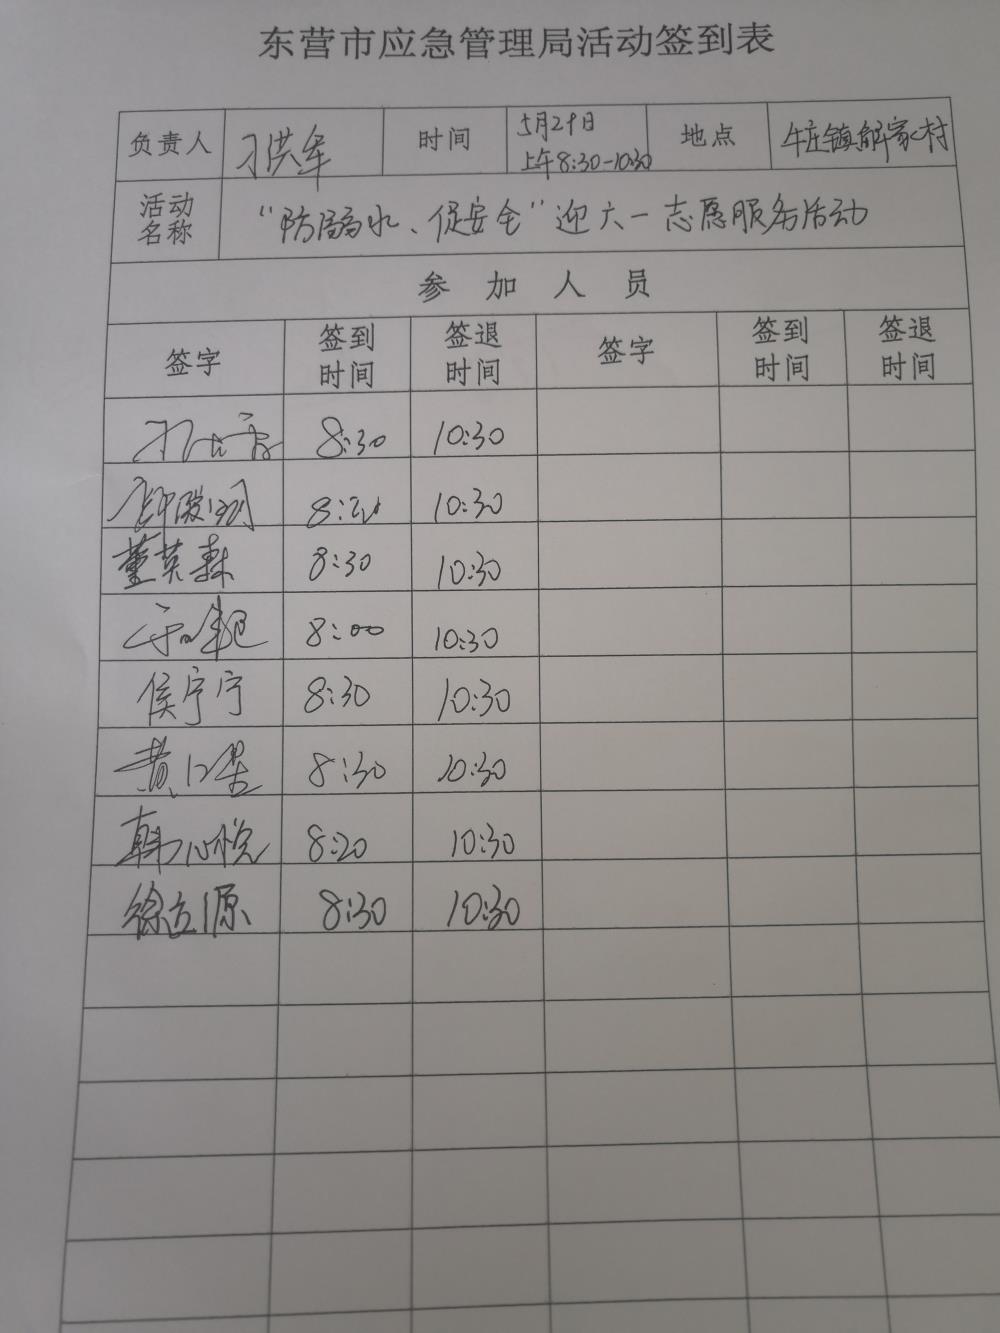 东营市应急管理局活动签到表
负责人 刁洪军 时间 5月29日 上午8:30-10:30 地点 牛庄镇解家村
活动名称 "防溺水、促安全"迎六一志愿服务活动
参加人员
签字 签到时间 签退时间 签字 签到时间 签退时间
8:30 10:30
8:20 10:30
董英森 8:30 10:30
8:00 10:30
侯宁宁 8:30 10:30
黄 8:30 10:30
韩心悦 8:20 10:30
徐立源 8:30 10:30